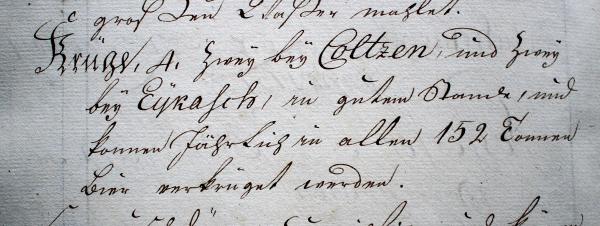 groß den Waßer mahlet.
Krüge, 4. Zwey bey Coltzen, und Zwey
bey Eykasch, in gutem Stande, und
konnen Jährlich in allen 152 Tonnen
Bier verkrüget werden.